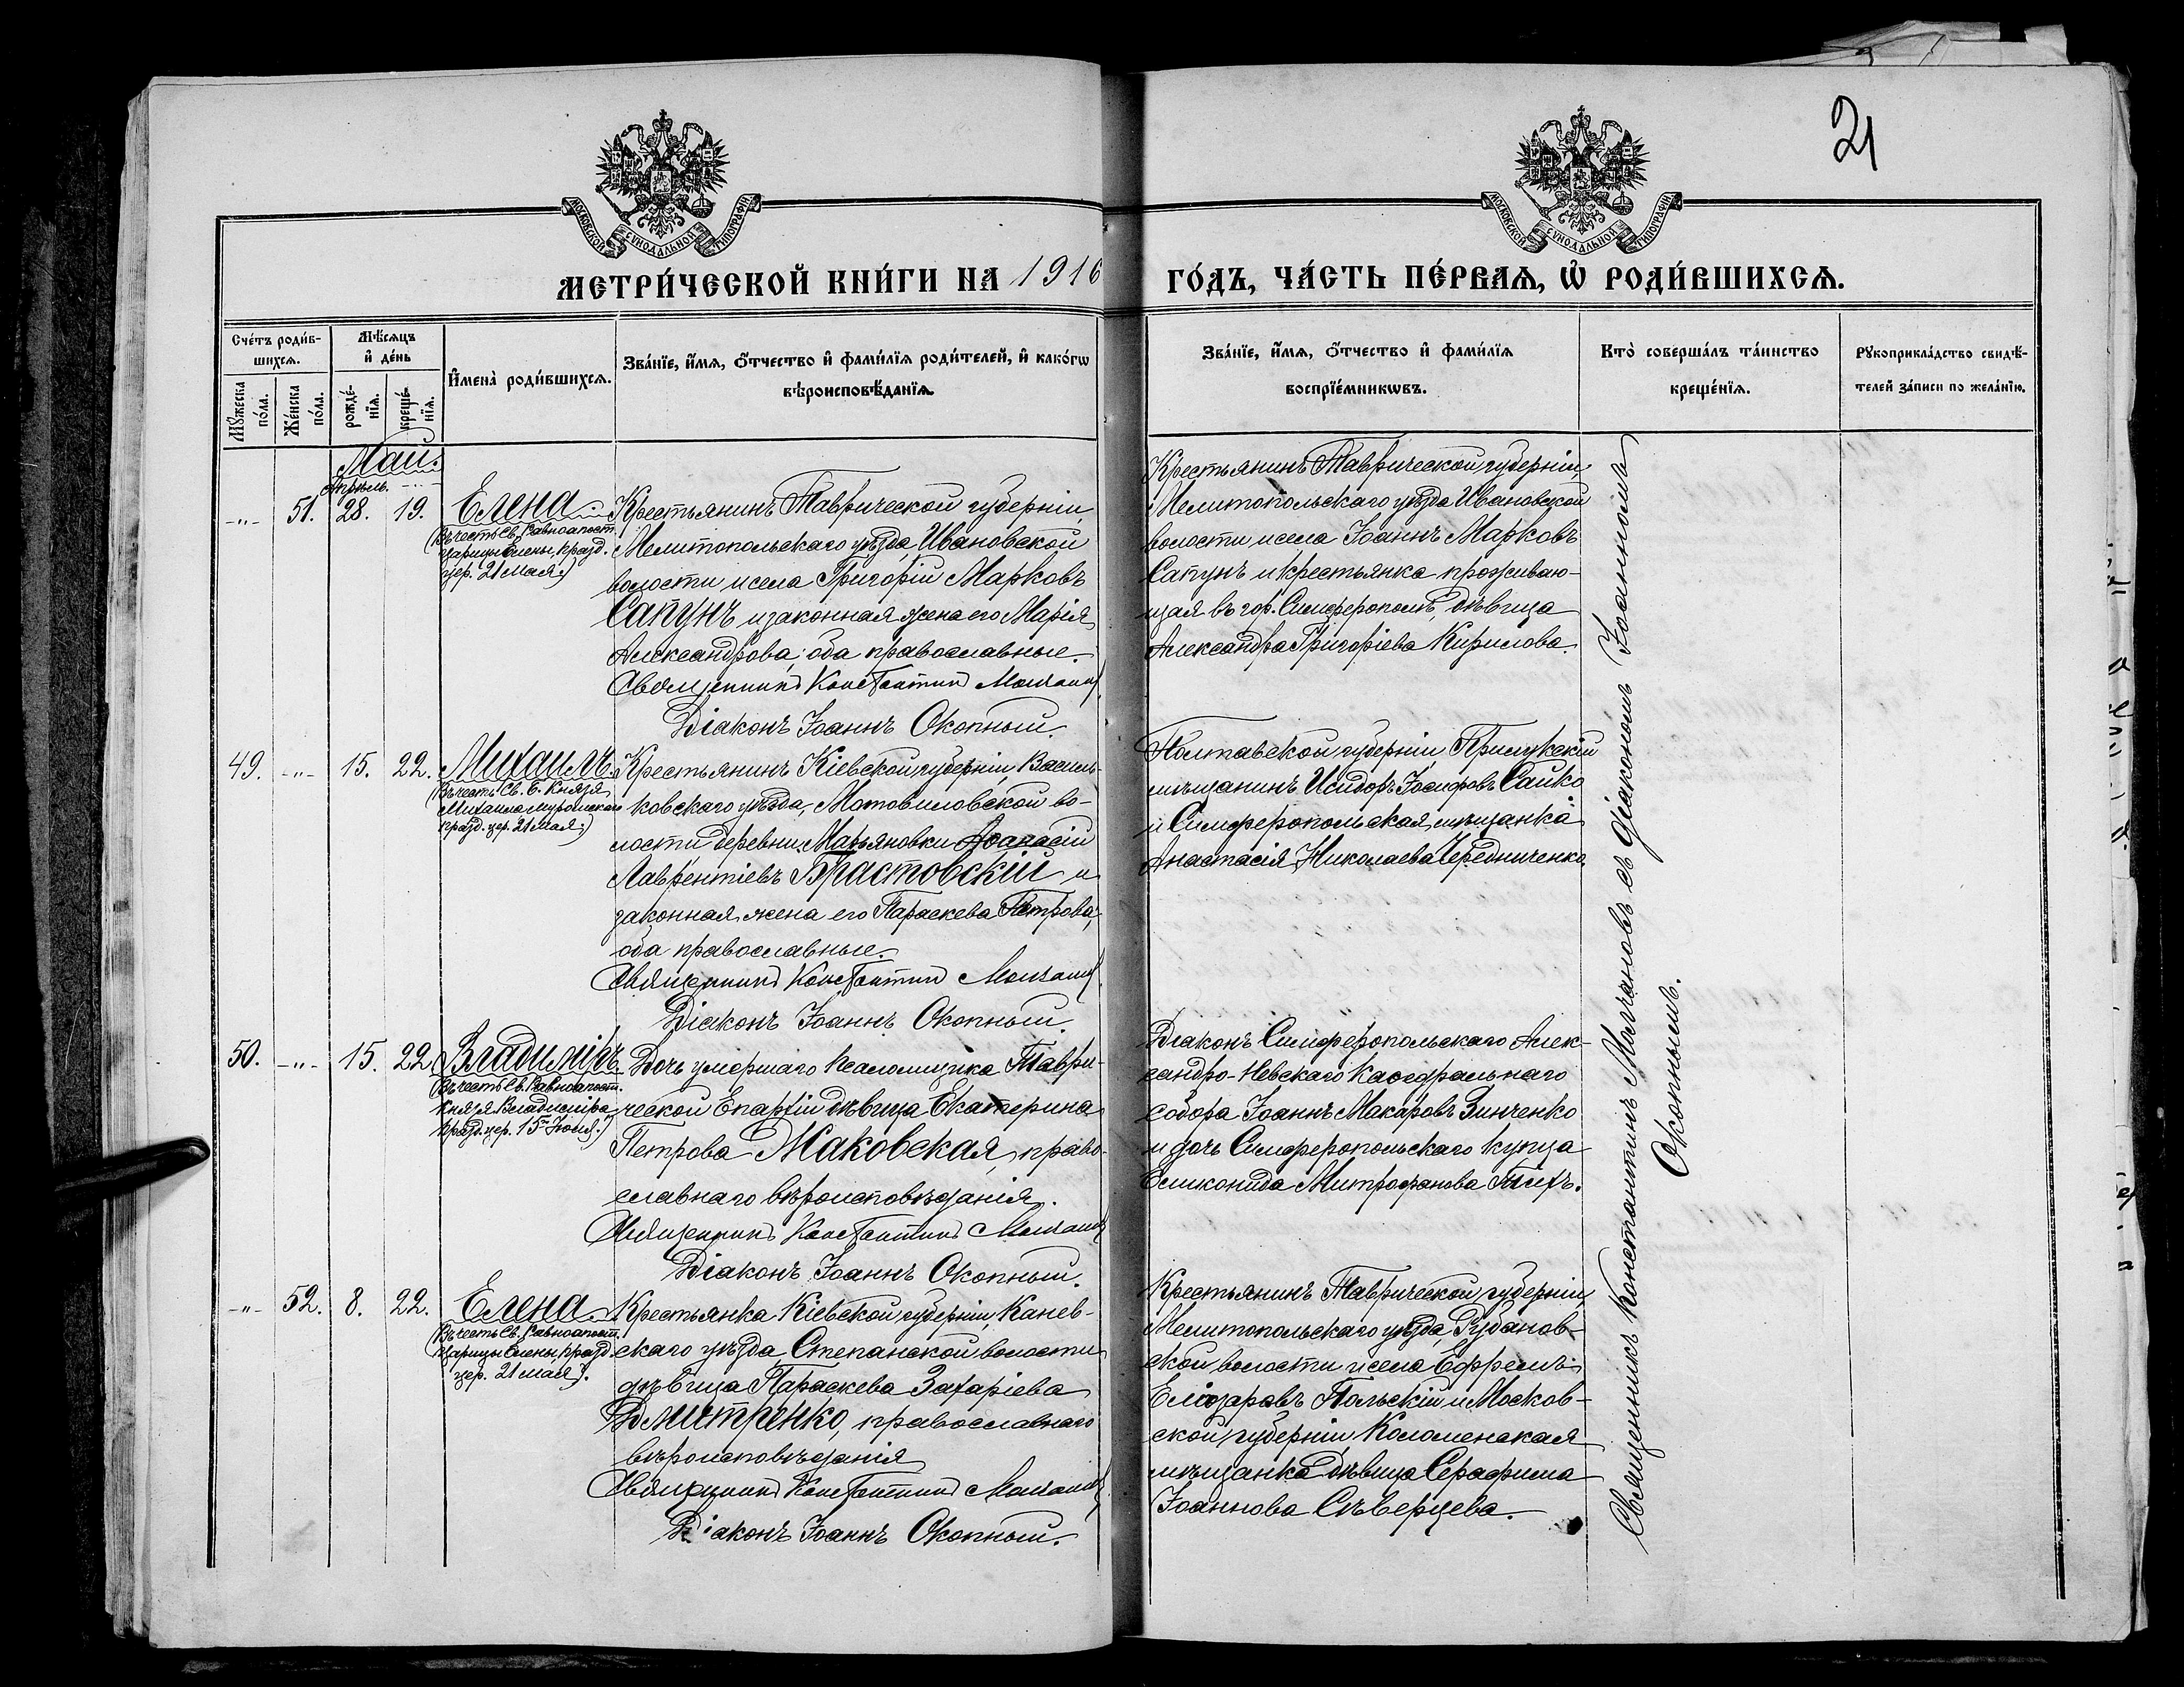 21
МОСКОВСКОЙ СѴНОДАЛЬНОЙ ТИПОГРАФІИ
МОСКОВСКОЙ СѴНОДАЛЬНОЙ ТИПОГРАФІИ
МЕТРИ́ЧЕСКОЙ КНИ́ГИ НА 1916
ГО́ДЪ, ЧА́СТЬ ПЕ́РВАѦ, Ѡ҆ РОДИ́ВШИХСѦ.
Сче́тъ роди́в-
шихсѧ.
Мꙋ́жеска
по́ла.
Же́нска
по́ла.
Мѣ́сѧцъ
и҆ де́нь
рожде́-
нїѧ.
креще́-
нїѧ.
И҆мена̀ роди́вшихсѧ.
Зва́нїе, и҆́мѧ, ѻ҆́тчество и҆ фами́лїѧ роди́телей, и҆ како́гѡ
вѣроисповѣ́данїѧ.
Зва́нїе, и҆́мѧ, ѻ҆́тчество и҆ фами́лїѧ
воспрїе́мникѡвъ.
Кто̀ соверша́лъ та́инство
креще́нїѧ.
Рꙋкоприкла́дство свидѣ́-
телей за́писи по жела́нїю.
Май.
Апрѣль.
-"- 51. 28. 19.
Елена
(Въ честь Св. Равноапост.
царицы Елены, празд.
цер. 21 мая.)
Крестьянинъ Таврической губерніи,
Мелитопольскаго уѣзда, Ивановской
волости и села Григорій Марковъ
Сапунъ и законная жена его Марія
Александрова, оба православные.
Священникъ Константинъ Молчановъ
Діаконъ Іоаннъ Окопный.
Крестьянинъ Таврической губерніи,
Мелитопольскаго уѣзда Ивановской
волости и села Іоаннъ Марковъ
Сапунъ и крестьянка проживаю-
щая въ гор. Симферополѣ, дѣвица
Александра Григоріева Кирилова.
49. -"- 15. 22.
Михаилъ
(Въ честь Св. б. Князя
Михаила Муромскаго
празд. цер. 21 мая.)
Крестьянинъ Кіевской губерніи, Василь-
ковскаго уѣзда, Мотовиловской во-
лости деревни Марьяновки Аѳанасій
Лаврентіевъ Брастовскій и
законная жена его Параскева Петрова,
оба православные.
Священникъ Константинъ Молчановъ
Діаконъ Іоаннъ Окопный.
Полтавской губерніи, Прилукскій
мѣщанинъ Исидоръ Іосифовъ Сайко
и Симферопольская мѣщанка
Анастасія Николаева Чередниченко.
50. -"- 15. 22.
Владиміръ
(Въ честь Св. Равноапост.
Князя Владиміра
празд. цер. 15го Іюля.)
Дочь умершаго Псаломщика Таври-
ческой Епархіи дѣвица Екатерина
Петрова Маковская, право-
славнаго вѣроисповѣданія.
Священникъ Константинъ Молчановъ
Діаконъ Іоаннъ Окопный.
Діаконъ Симферопольскаго Алек-
сандро-Невскаго Каѳедральнаго
собора Іоаннъ Макаровъ Зинченко
и дочь Симферопольскаго купца
Еликонида Митрофанова
-"- 52. 8. 22.
Елена
(Въ честь Св. Равноапост.
Царицы Елены, празд.
цер. 21 мая).
Крестьянка Кіевской губерніи, Канев-
скаго уѣзда, Степанской волости
дѣвица Параскева Захаріева
Дмитренко, православнаго
вѣроисповѣданія
Священникъ Константинъ Молчановъ
Діаконъ Іоаннъ Окопный.
Крестьянинъ Таврической губерніи,
Мелитопольскаго уѣзда, Рубанов-
ской волости и села Ефремъ
Елизаровъ Польскій и Москов-
ской губерніи, Коломенская
мѣщанка дѣвица Серафима
Іоаннова Сѣверцева.
Священникъ Константинъ Молчановъ съ діакономъ Іоанномъ
Окопнымъ.